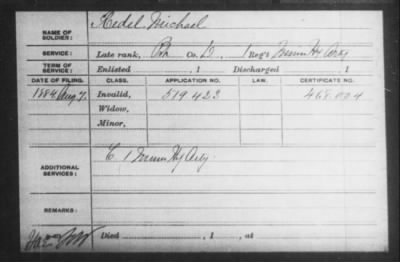 NAME OF SOLDIER: Kedel Michael
SERVICE: Late rank, Co. D, 1 Reg't Minn Hy Arty
TERM OF SERVICE: Enlisted , 1 Discharged , 1
DATE OF FILING. CLASS. APPLICATION NO. LAW. CERTIFICATE NO.
1884, Aug 7. Invalid, 519.423 468.004
Widow,
Minor,
ADDITIONAL SERVICES: C 1 Minn Hy Arty
REMARKS:
Died , 1 , at